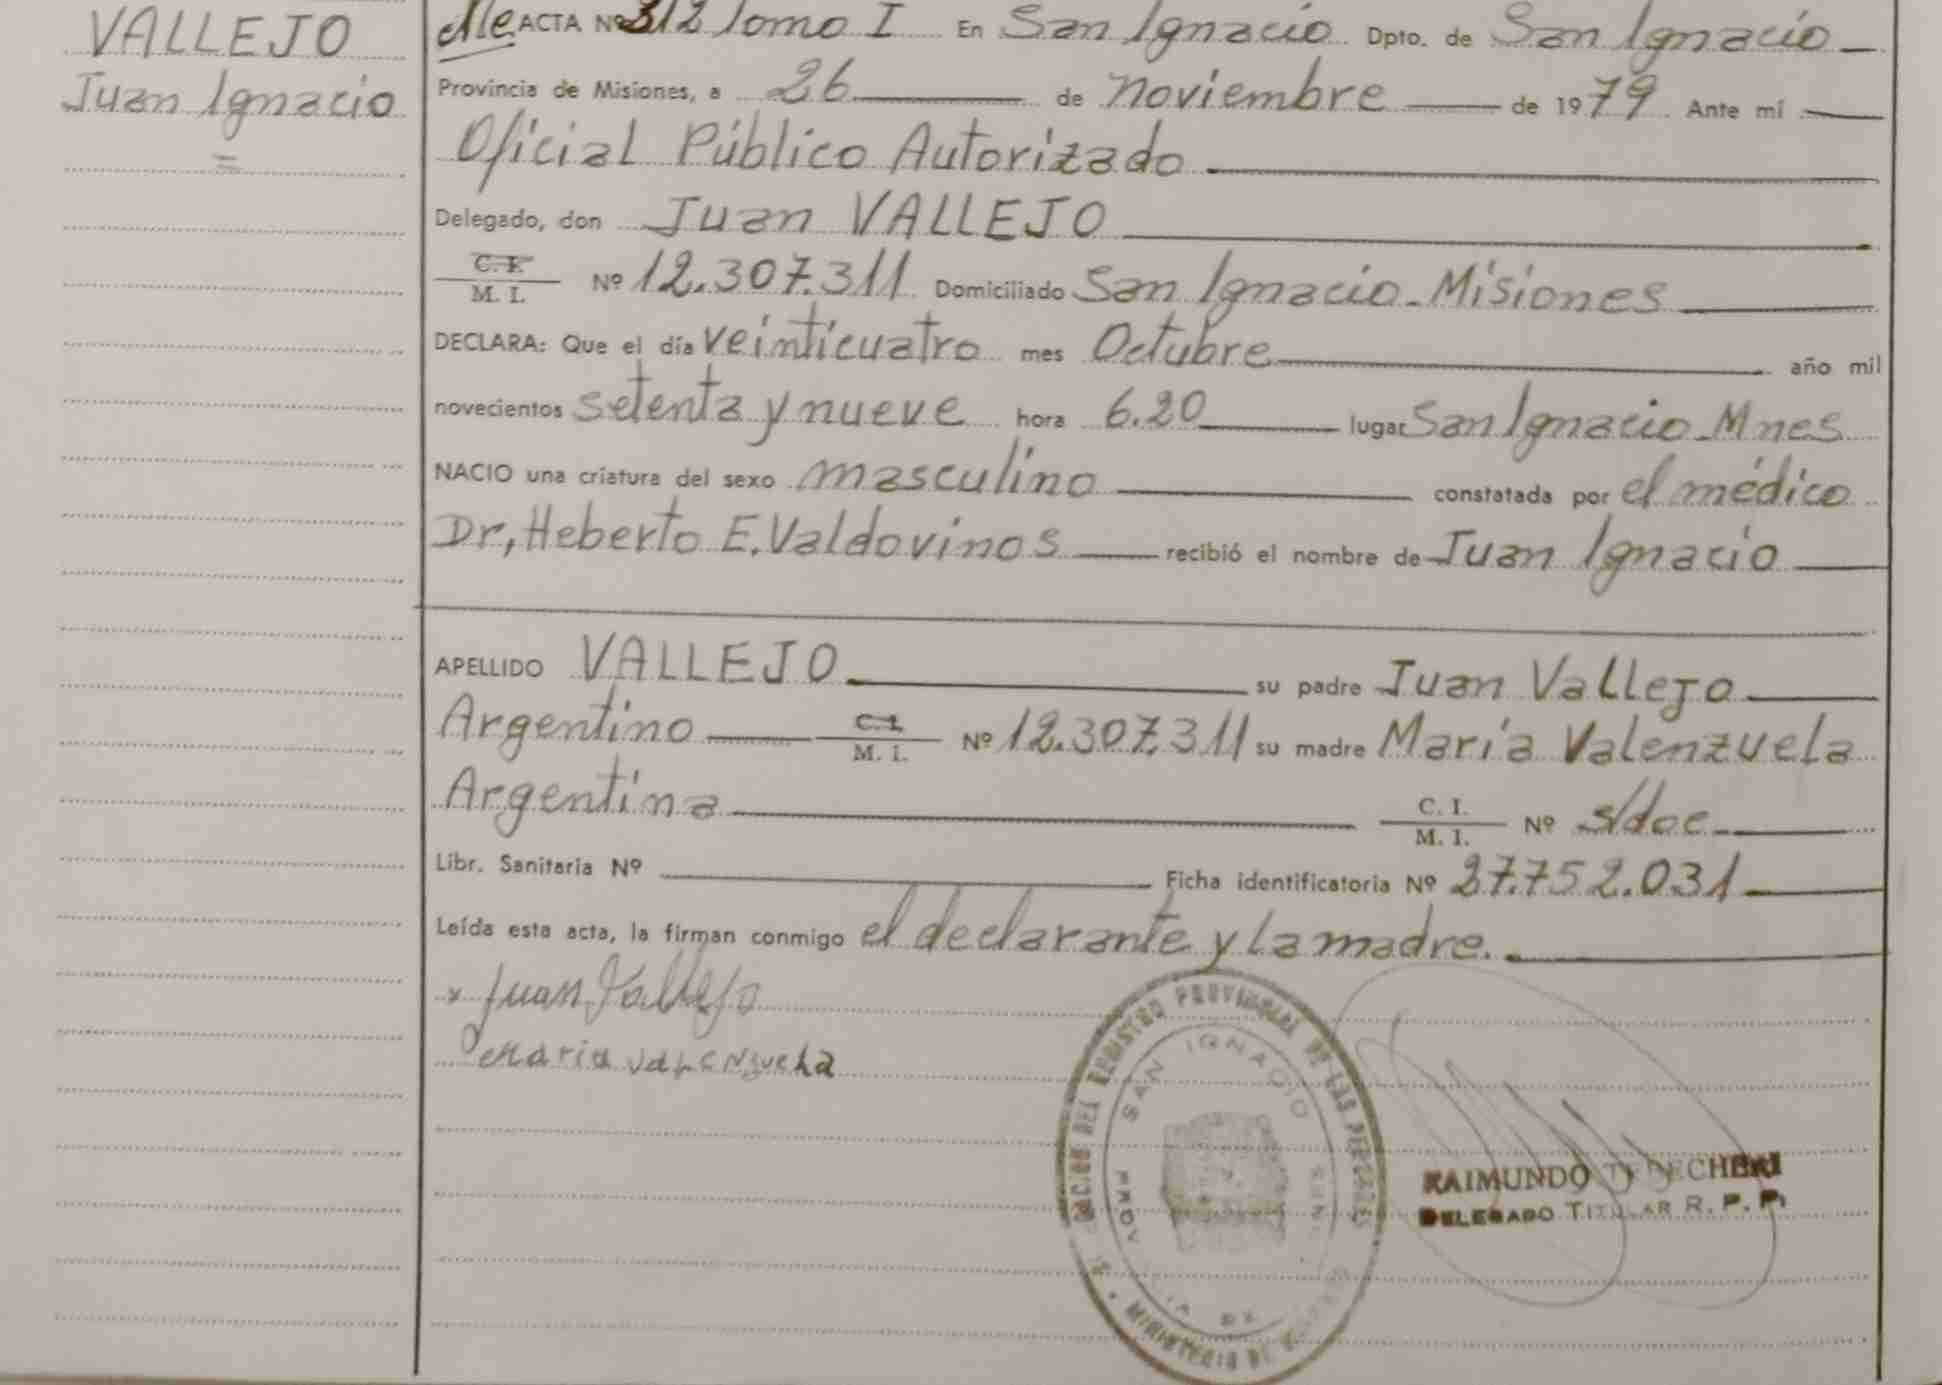 VALLEJO
Juan Ignacio
=
ACTA Nº 312 Tomo I En San Ignacio Dpto. de San Ignacio
Provincia de Misiones, a 26 de noviembre de 1979 Ante mí
Oficial Público Autorizado
Delegado, don Juan VALLEJO
C. I.
M. I. Nº 12.307.311 Domiciliado San Ignacio - Misiones
DECLARA: Que el día veinticuatro mes Octubre año mil
novecientos setenta y nueve hora 6.20 lugar San Ignacio - Mnes
NACIO una criatura del sexo masculino constatada por el médico
Dr, Heberto E. Valdovinos recibió el nombre de Juan Ignacio
APELLIDO VALLEJO su padre Juan Vallejo
Argentino C. I. M. I. Nº 12.307.311 su madre María Valenzuela
Argentina C. I. M. I. Nº s/doc
Libr. Sanitaria Nº Ficha identificatoria Nº 27.752.031
Leída esta acta, la firman conmigo el declarante y la madre.
x Juan Vallejo
Maria Valenzuela
REGISTRO PROVINCIAL DE LAS PERSONAS
SAN IGNACIO
MINISTERIO DE
RAIMUNDO
DELEGADO TITULAR R. P. P.